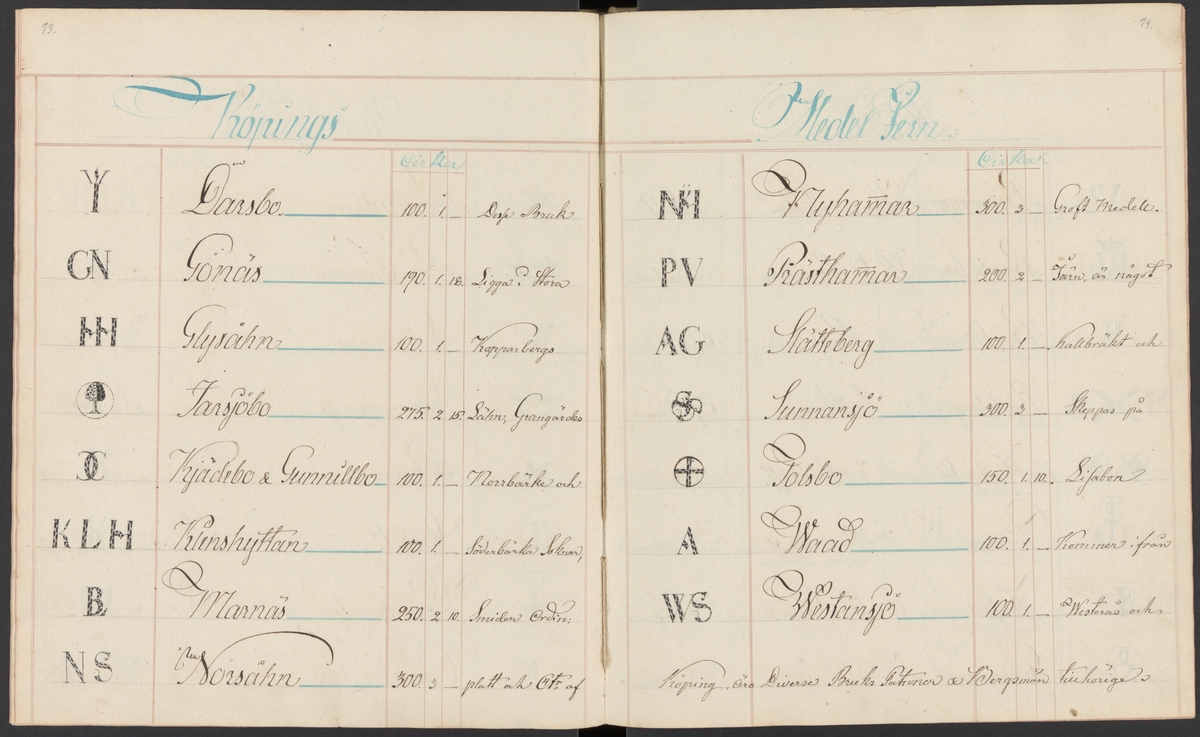 73.
Köpings
Cirka
Y Darsbo 100. 1. — Desse Bruk
GN Gönäs 190. 1. 18. Ligga i Stora
HH Glysåhn 100. 1. — Kopparbergs
Jarsjöbo 275. 2. 15. Lähn, Grangärdes
Kjädebo & Gunnillbo 100. 1. — Norrbärke och
KLH Klenshyttan 100. 1. — Söderbärke Soknar,
B Marnäs 250. 2. 10. Smider Ordin:
NS Norsåhn 300. 3 — platt och af
74.
Medel Jern.
Cirka
NH Nyhammar 300. 3 — Groft Medele.
PV Prästhammar 200. 2 — Järn, är något
AG Slätteberg 100. 1. — kallbräkt och
Sunnansjö 300. 3 — Skeppas på
Tolsbo 150. 1. 10. Lisabon
A Waad 100. 1. — Kommer ifrån
WS Westansjö 100. 1. — Westerås och
Köping, äro Diverse Bruks Patroner & Bergsmän tillhörige.